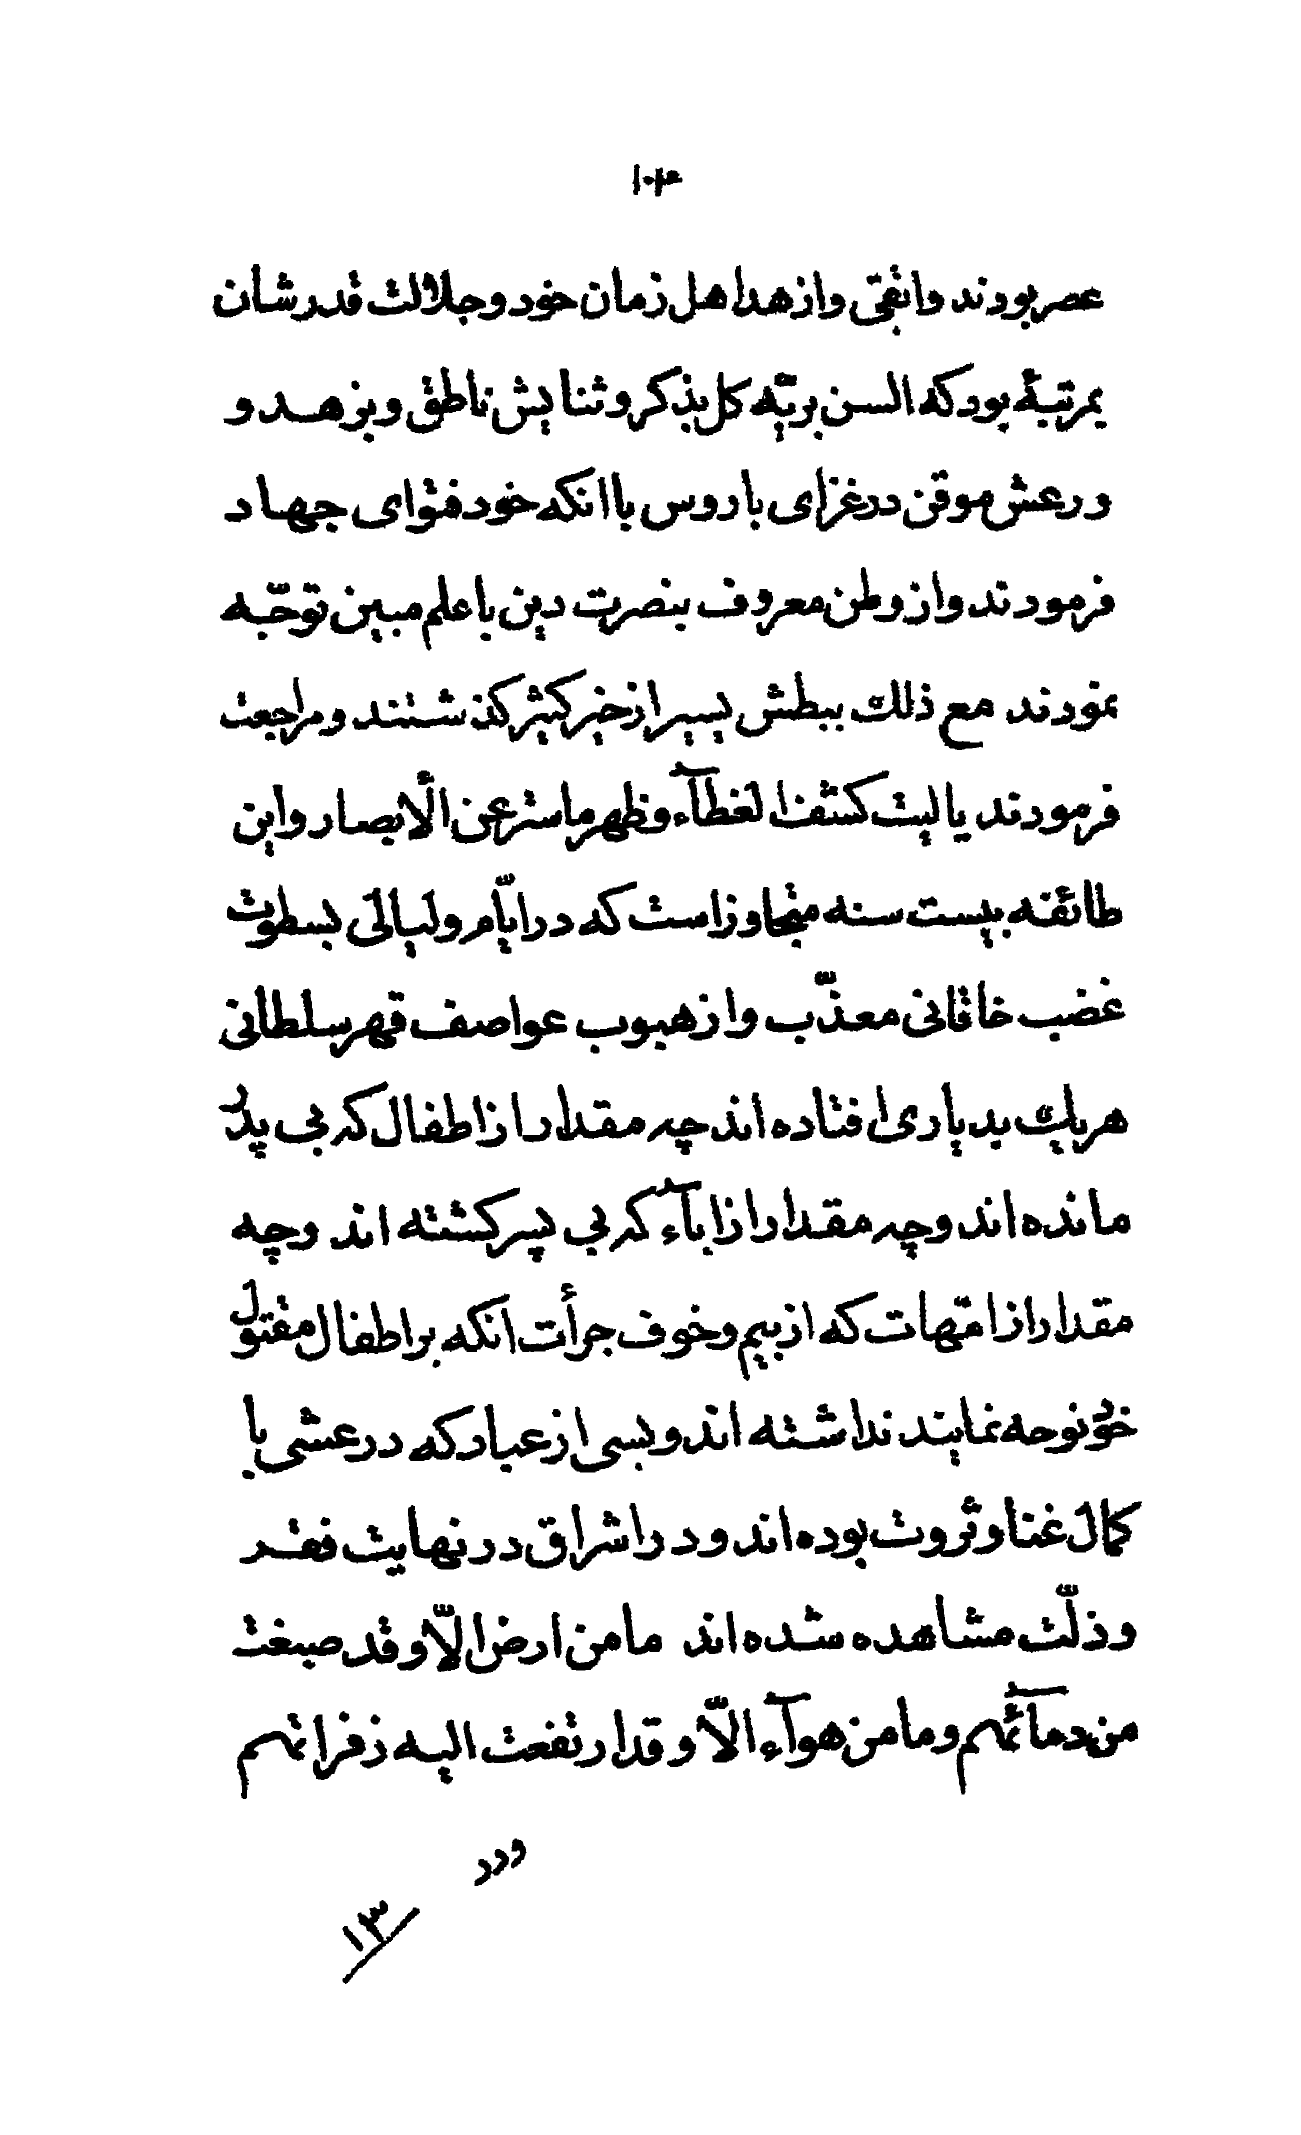 ۱۰۴
عصر بودند واتقی وازهد اهل زمان خود وجلالت قدرشان
بمرتبهٔ بود که السن بریّه کل بذکر و ثنایش ناطق و بزهد و
ورعش موقن در غزای با روس با انکه خود فتوای جهاد
فرمودند و از وطن معروف بنصرت دین با علم مبین توجّه
نمودند مع ذلك ببطش یسیر از خیر کثیر کذشتند و مراجعت
فرمودند یا لیت کشف الغطآء و ظهر ما ستر عن الأبصار و این
طائفه بیست سنه متجاوز است که در ایّام و لیالی بسطوت
غضب خاقانی معذّب و از هبوب عواصف قهر سلطانی
هریك بدیاری افتاده اند چه مقدار از اطفال که بی پدر
مانده اند و چه مقدار از ابآء که بی پسر کشته اند و چه
مقدار از امّهات که از بیم و خوف جرأت انکه بر اطفال مقتول
خود نوحه نمایند نداشته اند و بسی از عباد که در عشی با
کمال غنا و ثروت بوده اند و در اشراق در نهایت فقر
و ذلّت مشاهده شده اند ما من ارض الّا و قد صبغت
من دمآئهم و ما من هوآء الّا و قد ارتفعت الیه زفراتهم
۱۳